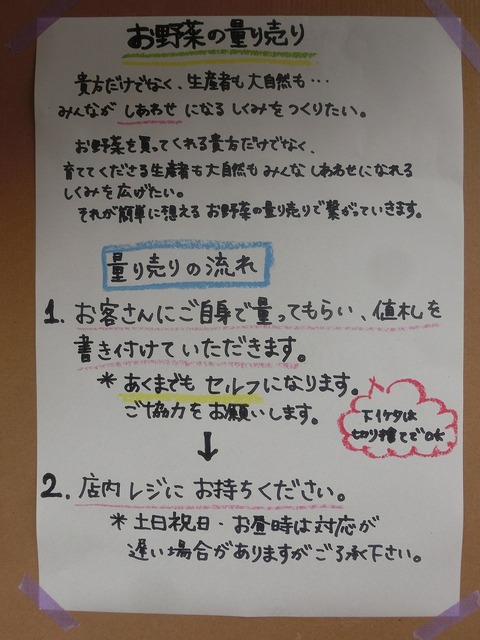 お野菜の量り売り
貴方だけでなく、生産者も大自然も・・・
みんなが しあわせ になる しくみをつくりたい。
お野菜を買ってくれる貴方だけでなく、
育ててくださる生産者も大自然も みんな しあわせになれる
しくみを広げたい。
それが簡単に想える お野菜の量り売りで繋がっていきます。
量り売りの流れ
1. お客さんにご自身で量ってもらい、値札を
書き付けていただきます。
* あくまでも セルフになります。
ご協力をお願いします。
下1ケタは
切り捨てでOK
↓
2. 店内レジに お持ちください。
* 土日祝日・お昼時は対応が
遅い場合がありますがご了承下さい。